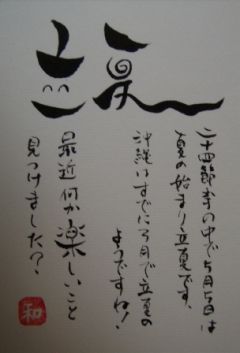 立夏
二十四節季の中で5月5日は
夏の始まり立夏です。
沖縄はすでに3月で立夏の
ようですね!
最近何か楽しいこと
見つけました?
和